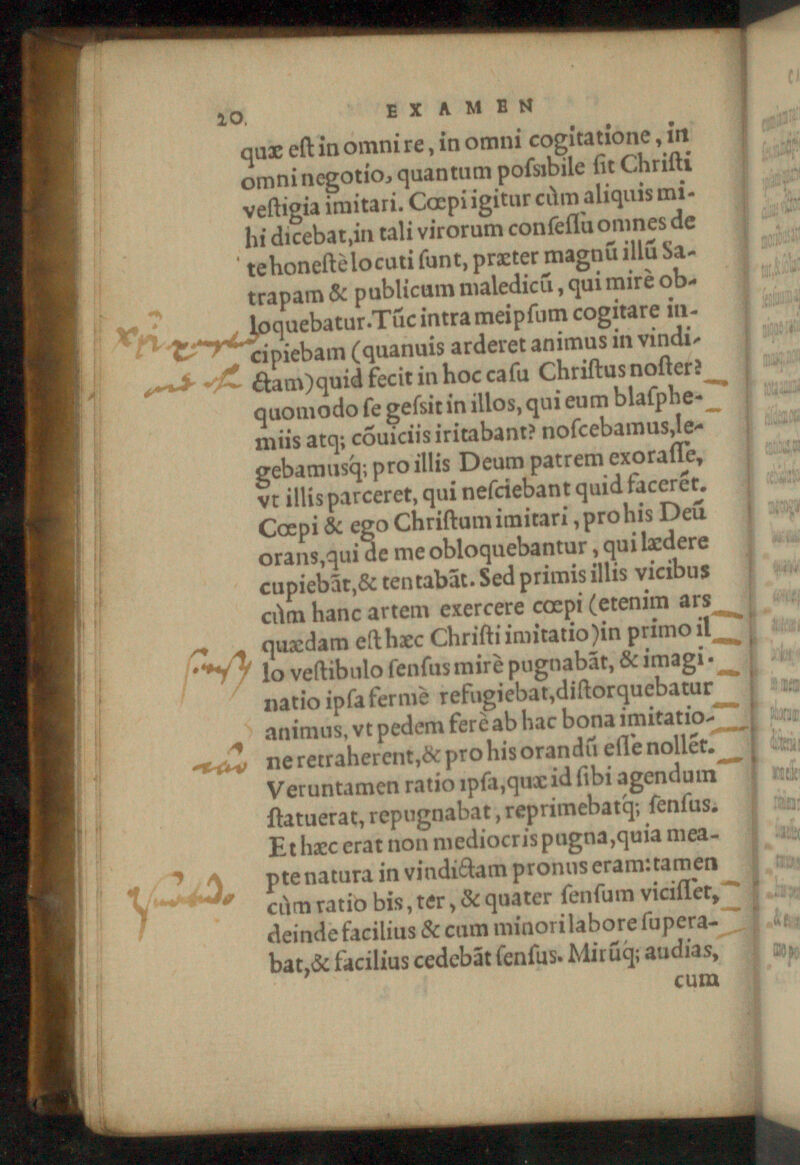 20. EXAMEN
quæ eſt in omni re, in omni cogitatione, in
omni negotio, quantum poſsibile ſit Chriſti
veſtigia imitari. Cœpi igitur cùm aliquis mi-
hi dicebat, in tali virorum conſeſſu omnes de
te honeſtè locuti ſunt, præter magnū illū Sa-
trapam & publicum maledicū, qui mirè ob-
loquebatur. Tūc intra meipſum cogitare in-
cipiebam (quanuis arderet animus in vindi-
ctam) quid fecit in hoc caſu Chriſtus noſter?
quomodo ſe geſsit in illos, qui eum blaſphe-
miis atq; cōuiciis iritabant? noſcebamus, le-
gebamusq́; pro illis Deum patrem exoraſſe,
vt illis parceret, qui neſciebant quid facerēt.
Cœpi & ego Chriſtum imitari, pro his Deū
orans, qui de me obloquebantur, qui lædere
cupiebāt, & tentabāt. Sed primis illis vicibus
cùm hanc artem exercere cœpi (etenim ars
quædam eſt hæc Chriſti imitatio) in primo il
lo veſtibulo ſenſus mirè pugnabāt, & imagi-
natio ipſa fermè refugiebat, diſtorquebatur
animus, vt pedem ferè ab hac bona imitatio-
ne retraherent, & pro his orandū eſſe nollēt.
Veruntamen ratio ipſa, quæ id ſibi agendum
ſtatuerat, repugnabat, reprimebatq́; ſenſus.
Et hæc erat non mediocris pugna, quia mea-
pte natura in vindictam pronus eram: tamen
cùm ratio bis, ter, & quater ſenſum viciſſet,
deinde facilius & cum minori labore ſupera-
bat, & facilius cedebāt ſenſus. Mirūq́; audias,
cum